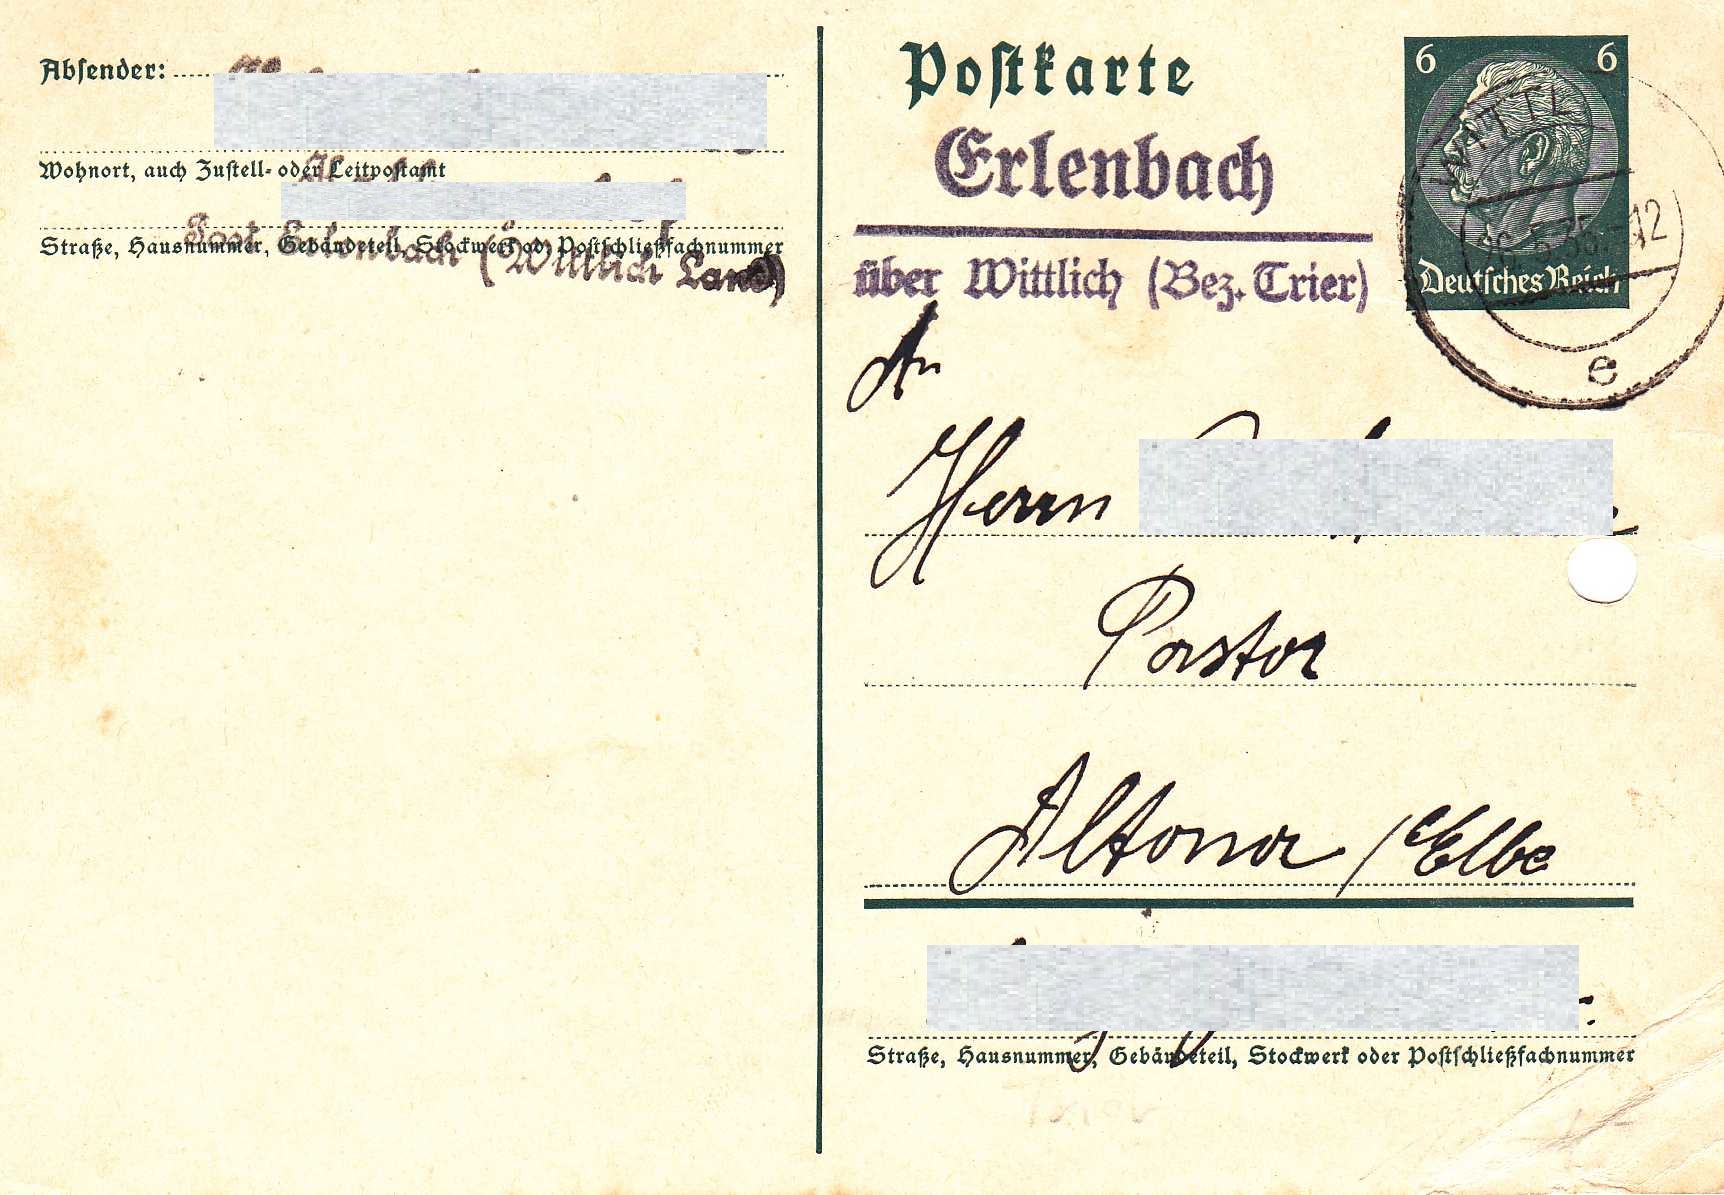 Absender:
Wohnort, auch Zustell- oder Leitpostamt
Straße, Hausnummer, Gebäudeteil, Stockwerk od. Postschließfachnummer
Post Erlenbach (Wittlich Land)
Postkarte
Erlenbach
über Wittlich (Bez. Trier)
6 6
Deutsches Reich
5.35.-12
e
An
Herrn
Pastor
Altona /Elbe
Straße, Hausnummer, Gebäudeteil, Stockwerk oder Postschließfachnummer